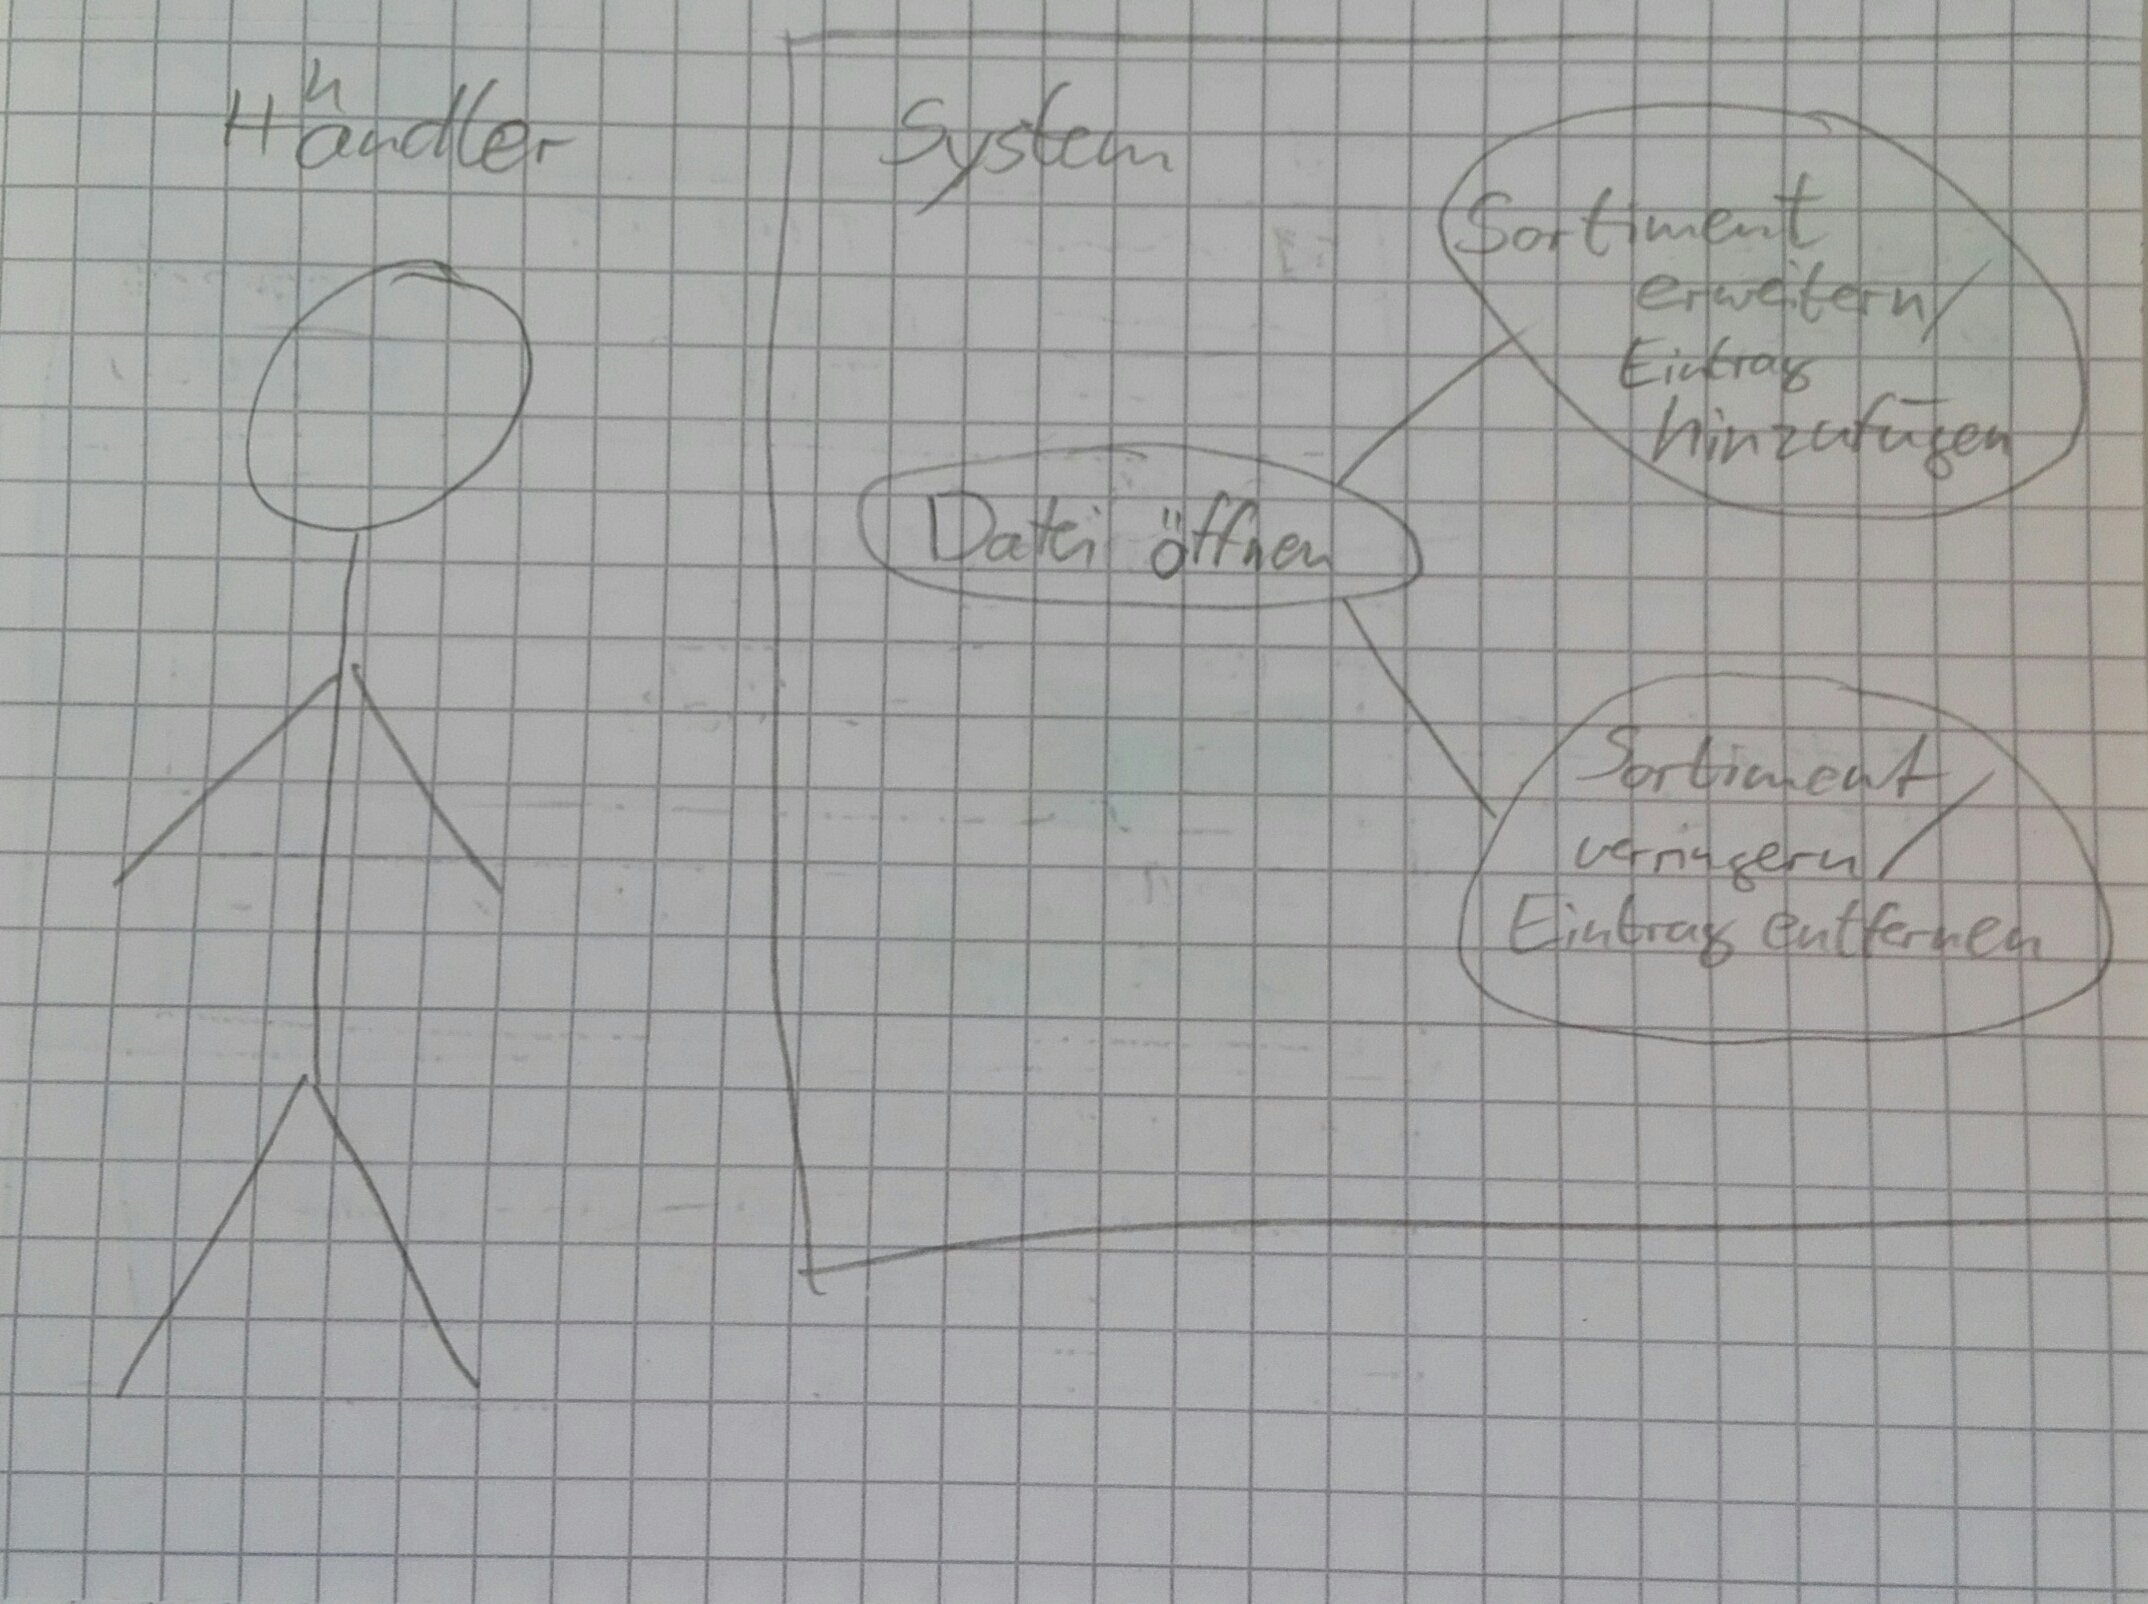 Händler
System
Sortiment
erweitern/
Eintrag
hinzufügen
Datei öffnen
Sortiment
verringern/
Eintrag entfernen